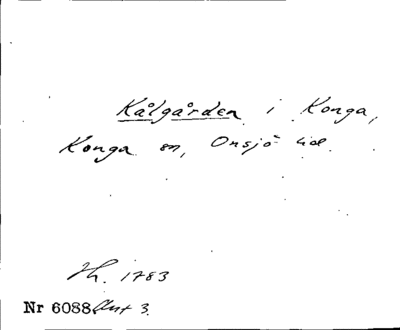 Kålgården i Konga,
Konga sn, Onsjö hd.
Th. 1783
Nr 6088 Aut 3.